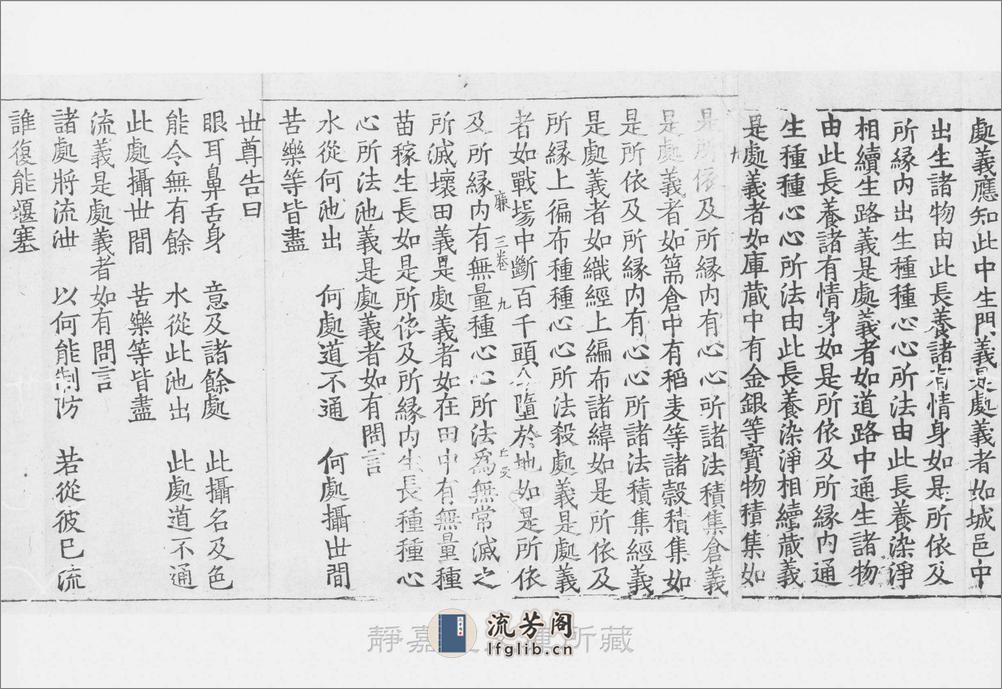 處義應知此中生門義是處義者如城邑中
出生諸物由此長養諸有情身如是所依及
所緣内出生種種心心所法由此長養染淨
相續生路義是處義者如道路中通生諸物
由此長養諸有情身如是所依及所緣内通
生種種心心所法由此長養染淨相續蔵義
是處義者如庫蔵中有金銀等寶物積集如
是所依及所緣内有心心所諸法積集倉義
是處義者如篅倉中有稻麦等諸穀積集如
是所依及所緣内有心心所諸法積集經義
是處義者如織經上編布諸緯如是所依及
所緣上徧布種種心心所法殺處義是處義
者如戰場中斷百千頭令墮於地如是所依
三卷 九
及所緣内有無量種心心所法為無常滅之
所滅壞田義是處義者如在田中有無量種
苗稼生長如是所依及所緣内生長種種心
心所法池義是處義者如有問言
水從何池出 何處道不通 何處攝世間
苦樂等皆盡
世尊告曰
眼耳鼻舌身 意及諸餘處 此攝名及色
能令無有餘 水從此池出 此處道不通
此處攝世間 苦樂等皆盡
流義是處義者如有問言
諸處將流泄 以何能制防 若從彼已流
誰復能堰塞
流芳阁
lfglib.cn
靜嘉 所藏